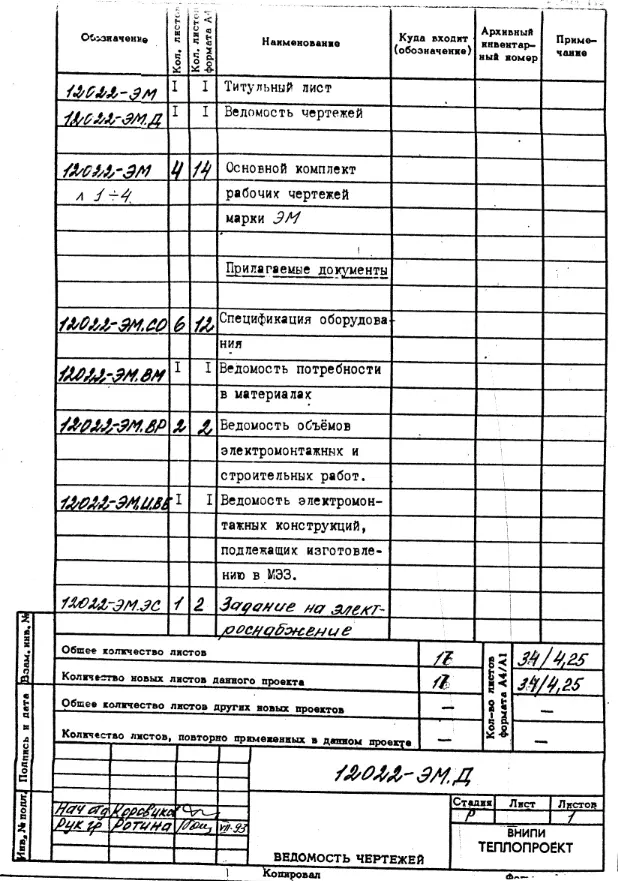 Обозначение Кол. листов Кол. листов формата А4 Наименование Куда входит (обозначение) Архивный инвентарный номер Примечание
12022-ЭМ I I Титульный лист
12022-ЭМ.Д I I Ведомость чертежей
12022-ЭМ 4 14 Основной комплект
л 1÷4 рабочих чертежей
марки ЭМ
Прилагаемые документы
12022-ЭМ.СО 6 12 Спецификация оборудова-
ния
12022-ЭМ.ВМ I I Ведомость потребности
в материалах
12022-ЭМ.ВР 2 2 Ведомость объёмов
электромонтажных и
строительных работ.
12022-ЭМ.И.ВБ I I Ведомость электромон-
тажных конструкций,
подлежащих изготовле-
нию в МЭЗ.
12022-ЭМ.ЭС 1 2 Задание на элект-
роснабжение
Общее количество листов 17 Кол-во листов формата А4/А1 34/4,25
Количество новых листов данного проекта 17 34/4,25
Общее количество листов других новых проектов — —
Количество листов, повторно примененных в данном проекте — —
Взам. инв. №
Подпись и дата
Инв. № подл.
12022-ЭМ.Д
Стадия Лист Листов
Р 1
Нач отд Коровико
Рук гр Ротина VII-93
ВЕДОМОСТЬ ЧЕРТЕЖЕЙ
ВНИПИ
ТЕПЛОПРОЕКТ
Копировал